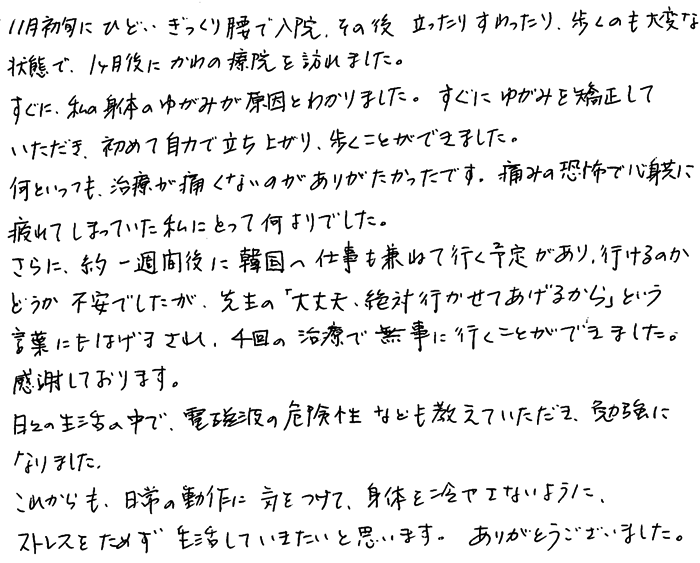 11月初旬に ひどい ぎっくり腰で入院、その後 立ったり すわったり、歩くのも大変な
状態で、1ヶ月後に かわの療院を訪れました。
すぐに、私の身体のゆがみが原因とわかりました。すぐに ゆがみを矯正して
いただき、初めて自力で立ち上がり、歩くことができました。
何といっても、治療が痛くないのがありがたかったです。痛みの恐怖で心身共に
疲れてしまっていた私にとって何よりでした。
さらに、約一週間後に韓国へ仕事も兼ねて行く予定があり、行けるのか
どうか 不安でしたが、先生の「大丈夫、絶対行かせてあげるから」という
言葉にもはげまされ、4回の治療で無事に行くことができました。
感謝しております。
日々の生活の中で、電磁波の危険性なども教えていただき、勉強に
なりました。
これからも、日常の動作に気をつけて、身体を冷やさないように、
ストレスをためず 生活していきたいと思います。ありがとうございました。